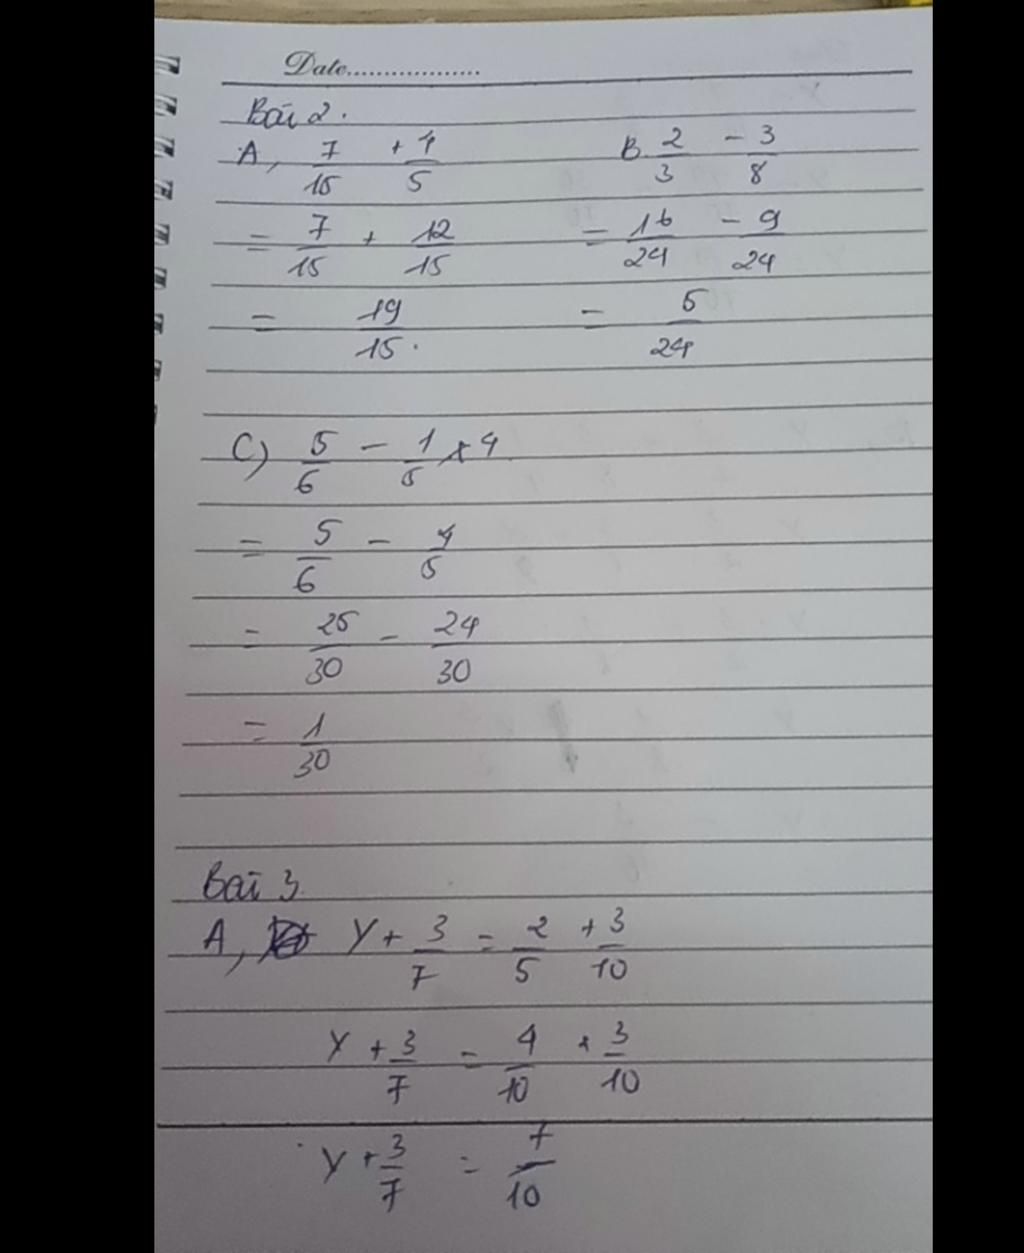 Date..................
Bài 2.
A, 7/15 + 4/5 B. 2/3 - 3/8
= 7/15 + 12/15 = 16/24 - 9/24
= 19/15. = 5/24
C) 5/6 - 1/5 x 4
= 5/6 - 4/5
= 25/30 - 24/30
= 1/30
Bài 3
A, Y + 3/7 = 2/5 + 3/10
Y + 3/7 = 4/10 + 3/10
Y + 3/7 = 7/10